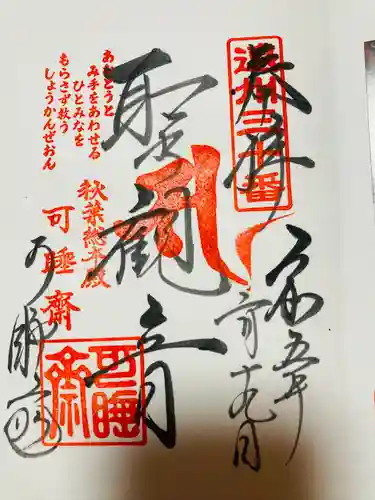 奉拝
遠州三十三番
令和五年
聖観音
あなとうと
み手をあわせる
ひとみなを
もらさず救う
しょうかんぜおん
秋葉総本殿
可睡齋
可睡斎
可睡齋